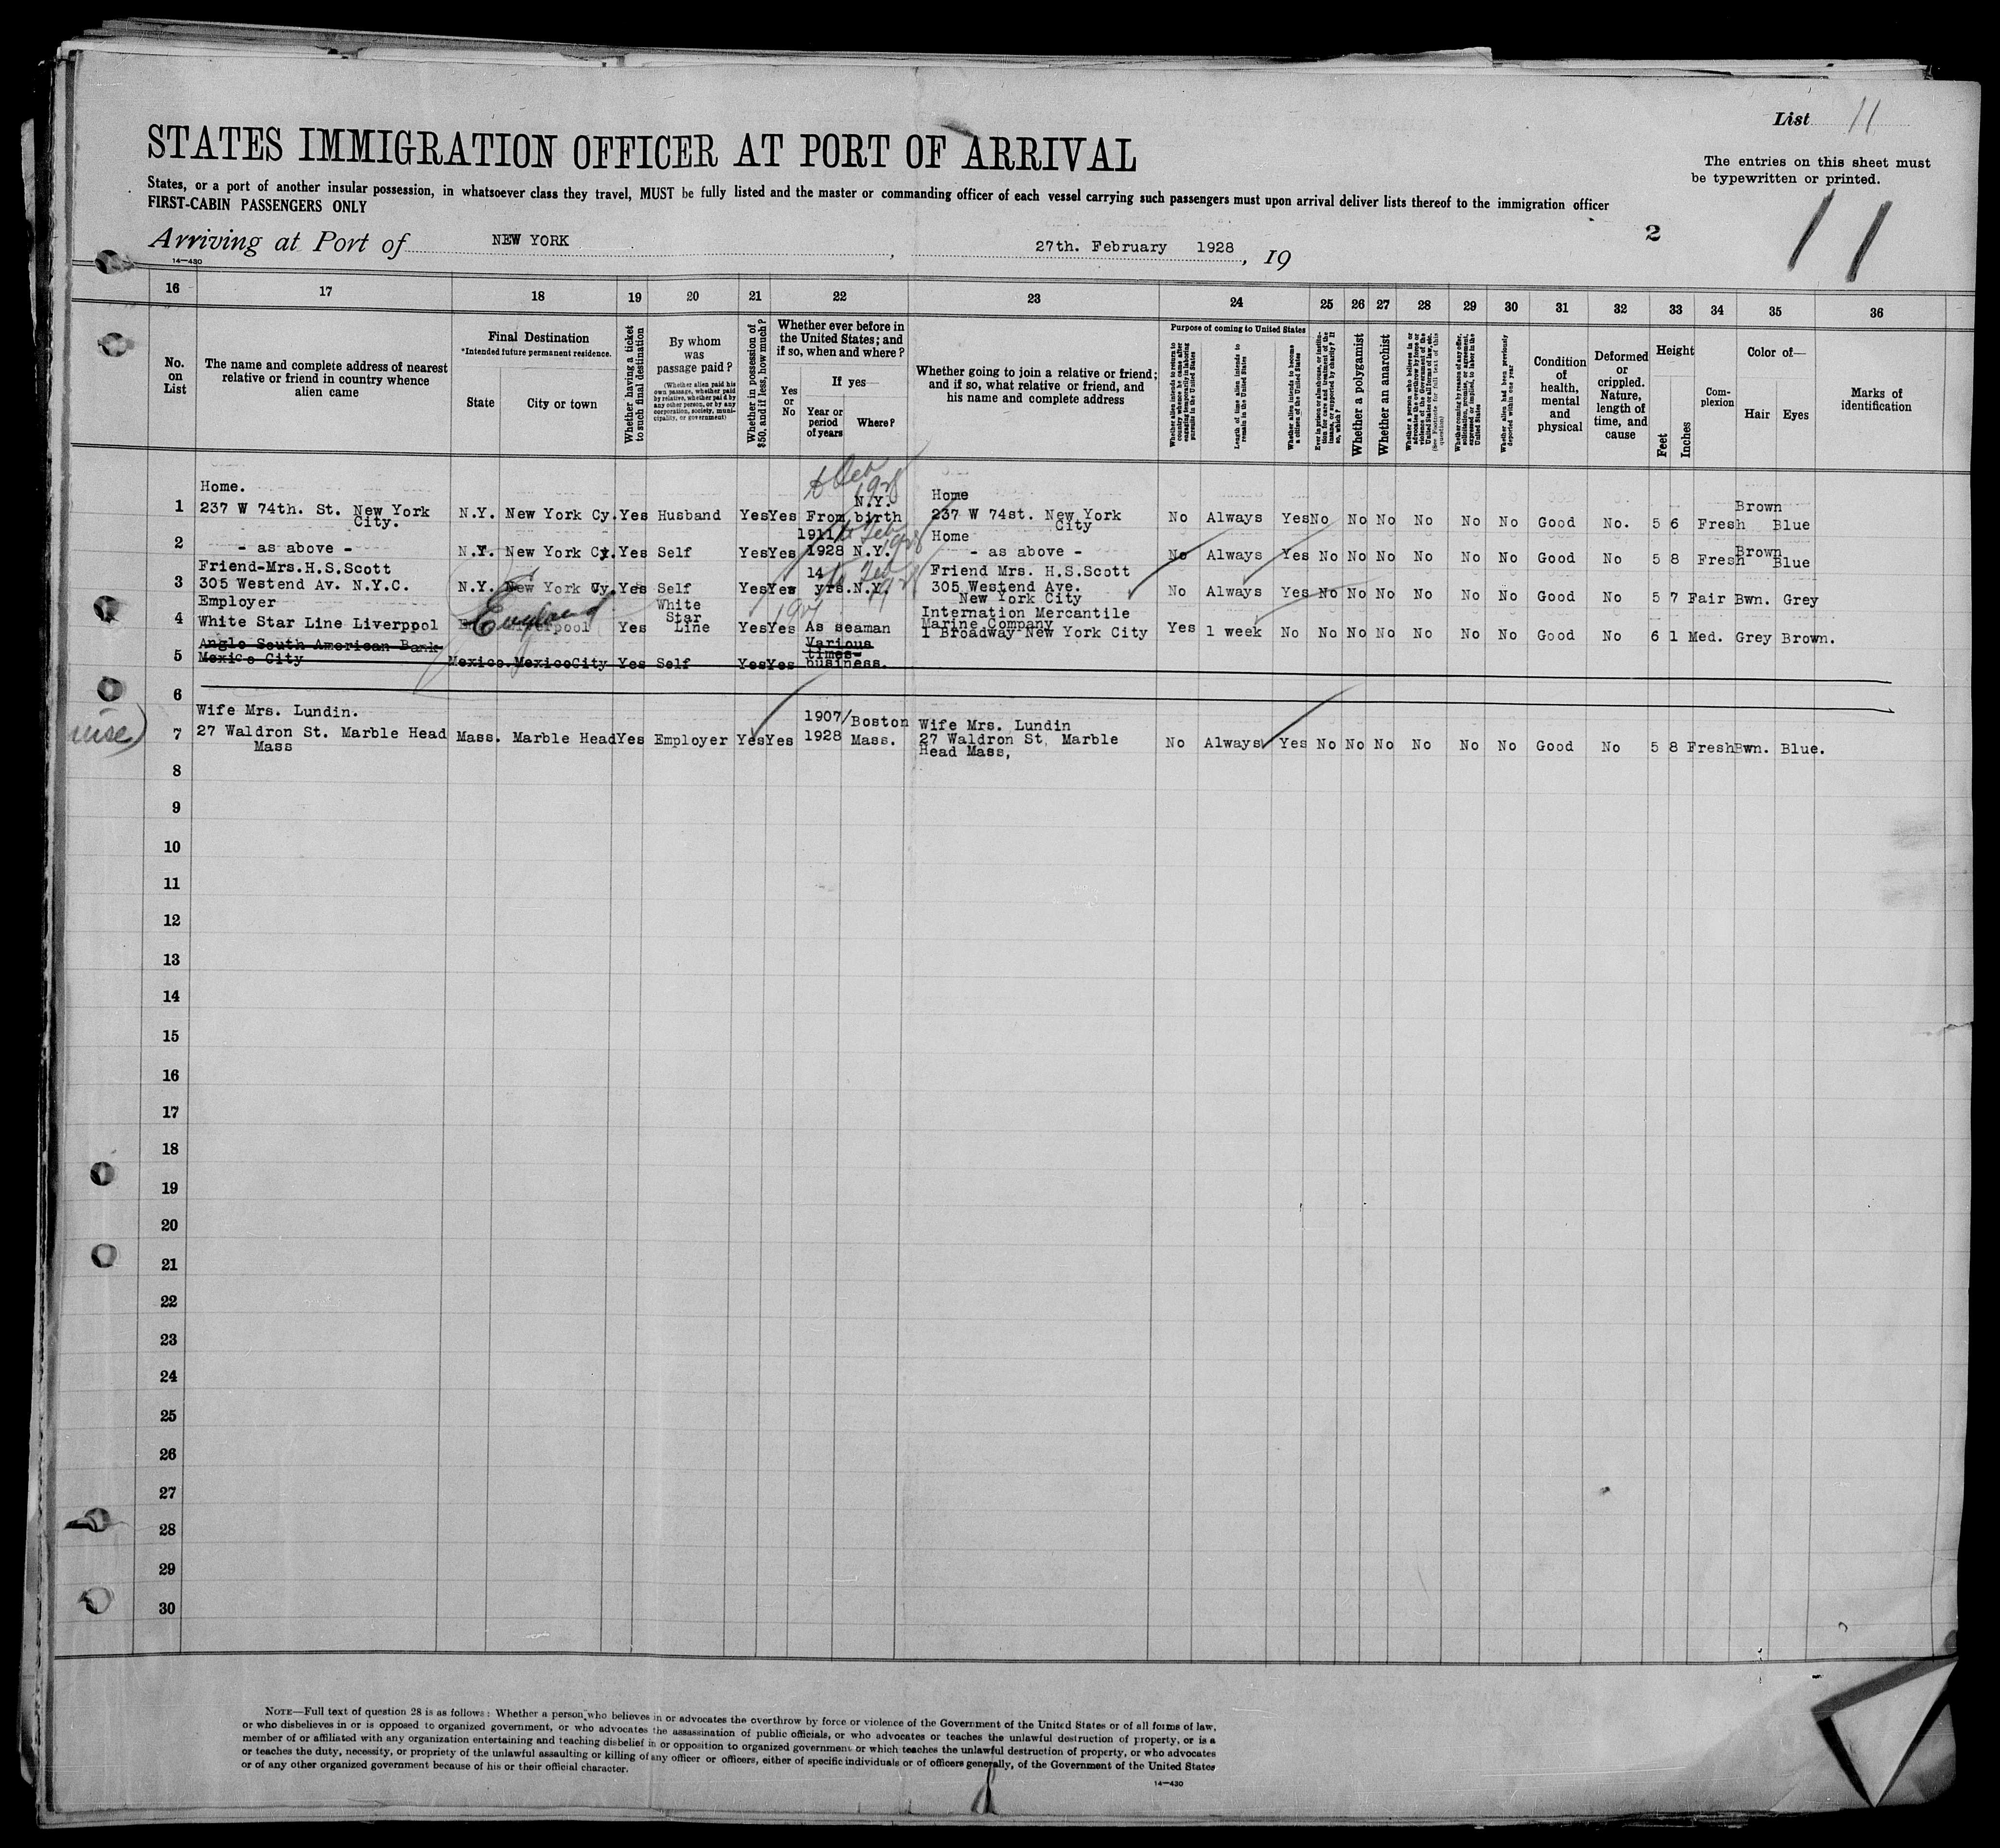 List 11
STATES IMMIGRATION OFFICER AT PORT OF ARRIVAL
The entries on this sheet must
be typewritten or printed.
States, or a port of another insular possession, in whatsoever class they travel, MUST be fully listed and the master or commanding officer of each vessel carrying such passengers must upon arrival deliver lists thereof to the immigration officer
FIRST-CABIN PASSENGERS ONLY
Arriving at Port of NEW YORK, 27th. February 1928, 19
2
11
14—430
16 17 18 19 20 21 22 23 24 25 26 27 28 29 30 31 32 33 34 35 36
No. on List
The name and complete address of nearest relative or friend in country whence alien came
Final Destination
*Intended future permanent residence.
State
City or town
Whether having a ticket to such final destination
By whom was passage paid?
(Whether alien paid his own passage, whether paid by relative, whether paid by any other person, or by any corporation, society, municipality, or government)
Whether in possession of $50, and if less, how much?
Whether ever before in the United States; and if so, when and where?
Yes or No
If yes—
Year or period of years
Where?
Whether going to join a relative or friend; and if so, what relative or friend, and his name and complete address
Purpose of coming to United States
Whether alien intends to return to country whence he came after engaging temporarily in laboring pursuits in the United States
Length of time alien intends to remain in the United States
Whether alien intends to become a citizen of the United States
Ever in prison or almshouse, or institution for care and treatment of the insane, or supported by charity? If so, which?
Whether a polygamist
Whether an anarchist
Whether a person who believes in or advocates the overthrow by force or violence of the Government of the United States or all forms of law, etc. (See Footnote for full text of this question)
Whether coming by reason of any offer, solicitation, promise, or agreement, expressed or implied, to labor in the United States
Whether alien had been previously deported within one year
Condition of health, mental and physical
Deformed or crippled. Nature, length of time, and cause
Height
Feet
Inches
Complexion
Color of—
Hair
Eyes
Marks of identification
1 Home. 237 W 74th. St. New York City. N.Y. New York Cy. Yes Husband Yes Yes From birth N.Y. Home 237 W 74st. New York City No Always Yes No No No No No No Good No. 5 6 Fresh Brown Blue
2 - as above - N.Y. New York Cy. Yes Self Yes Yes 1911/ 1928 N.Y. Home - as above - No Always Yes No No No No No No Good No 5 8 Fresh Brown Blue
3 Friend-Mrs.H.S.Scott 305 Westend Av. N.Y.C. N.Y. New York Cy. Yes Self Yes Yes 14 yrs. N.Y. Friend Mrs. H.S.Scott 305 Westend Ave. New York City No Always Yes No No No No No No Good No 5 7 Fair Bwn. Grey
4 Employer White Star Line Liverppol England Liverpool Yes White Star Line Yes Yes As seaman Internation Mercantile Marine Company 1 Broadway New York City Yes 1 week No No No No No No No Good No 6 1 Med. Grey Brown.
5 Anglo South American Bank Mexico City Mexico. MexicoCity Yes Self Yes Yes Various times- business.
6
7 Wife Mrs. Lundin. 27 Waldron St. Marble Head Mass Mass. Marble Head Yes Employer Yes Yes 1907/ 1928 Boston Mass. Wife Mrs. Lundin 27 Waldron St, Marble Head Mass, No Always Yes No No No No No No Good No 5 8 Fresh Bwn. Blue.
8
9
10
11
12
13
14
15
16
17
18
19
20
21
22
23
24
25
26
27
28
29
30
NOTE—Full text of question 28 is as follows: Whether a person who believes in or advocates the overthrow by force or violence of the Government of the United States or of all forms of law,
or who disbelieves in or is opposed to organized government, or who advocates the assassination of public officials, or who advocates or teaches the unlawful destruction of property, or is a
member of or affiliated with any organization entertaining and teaching disbelief in or opposition to organized government or which teaches the unlawful destruction of property, or who advocates
or teaches the duty, necessity, or propriety of the unlawful assaulting or killing of any officer or officers, either of specific individuals or of officers generally, of the Government of the United States
or of any other organized government because of his or their official character.
14—430